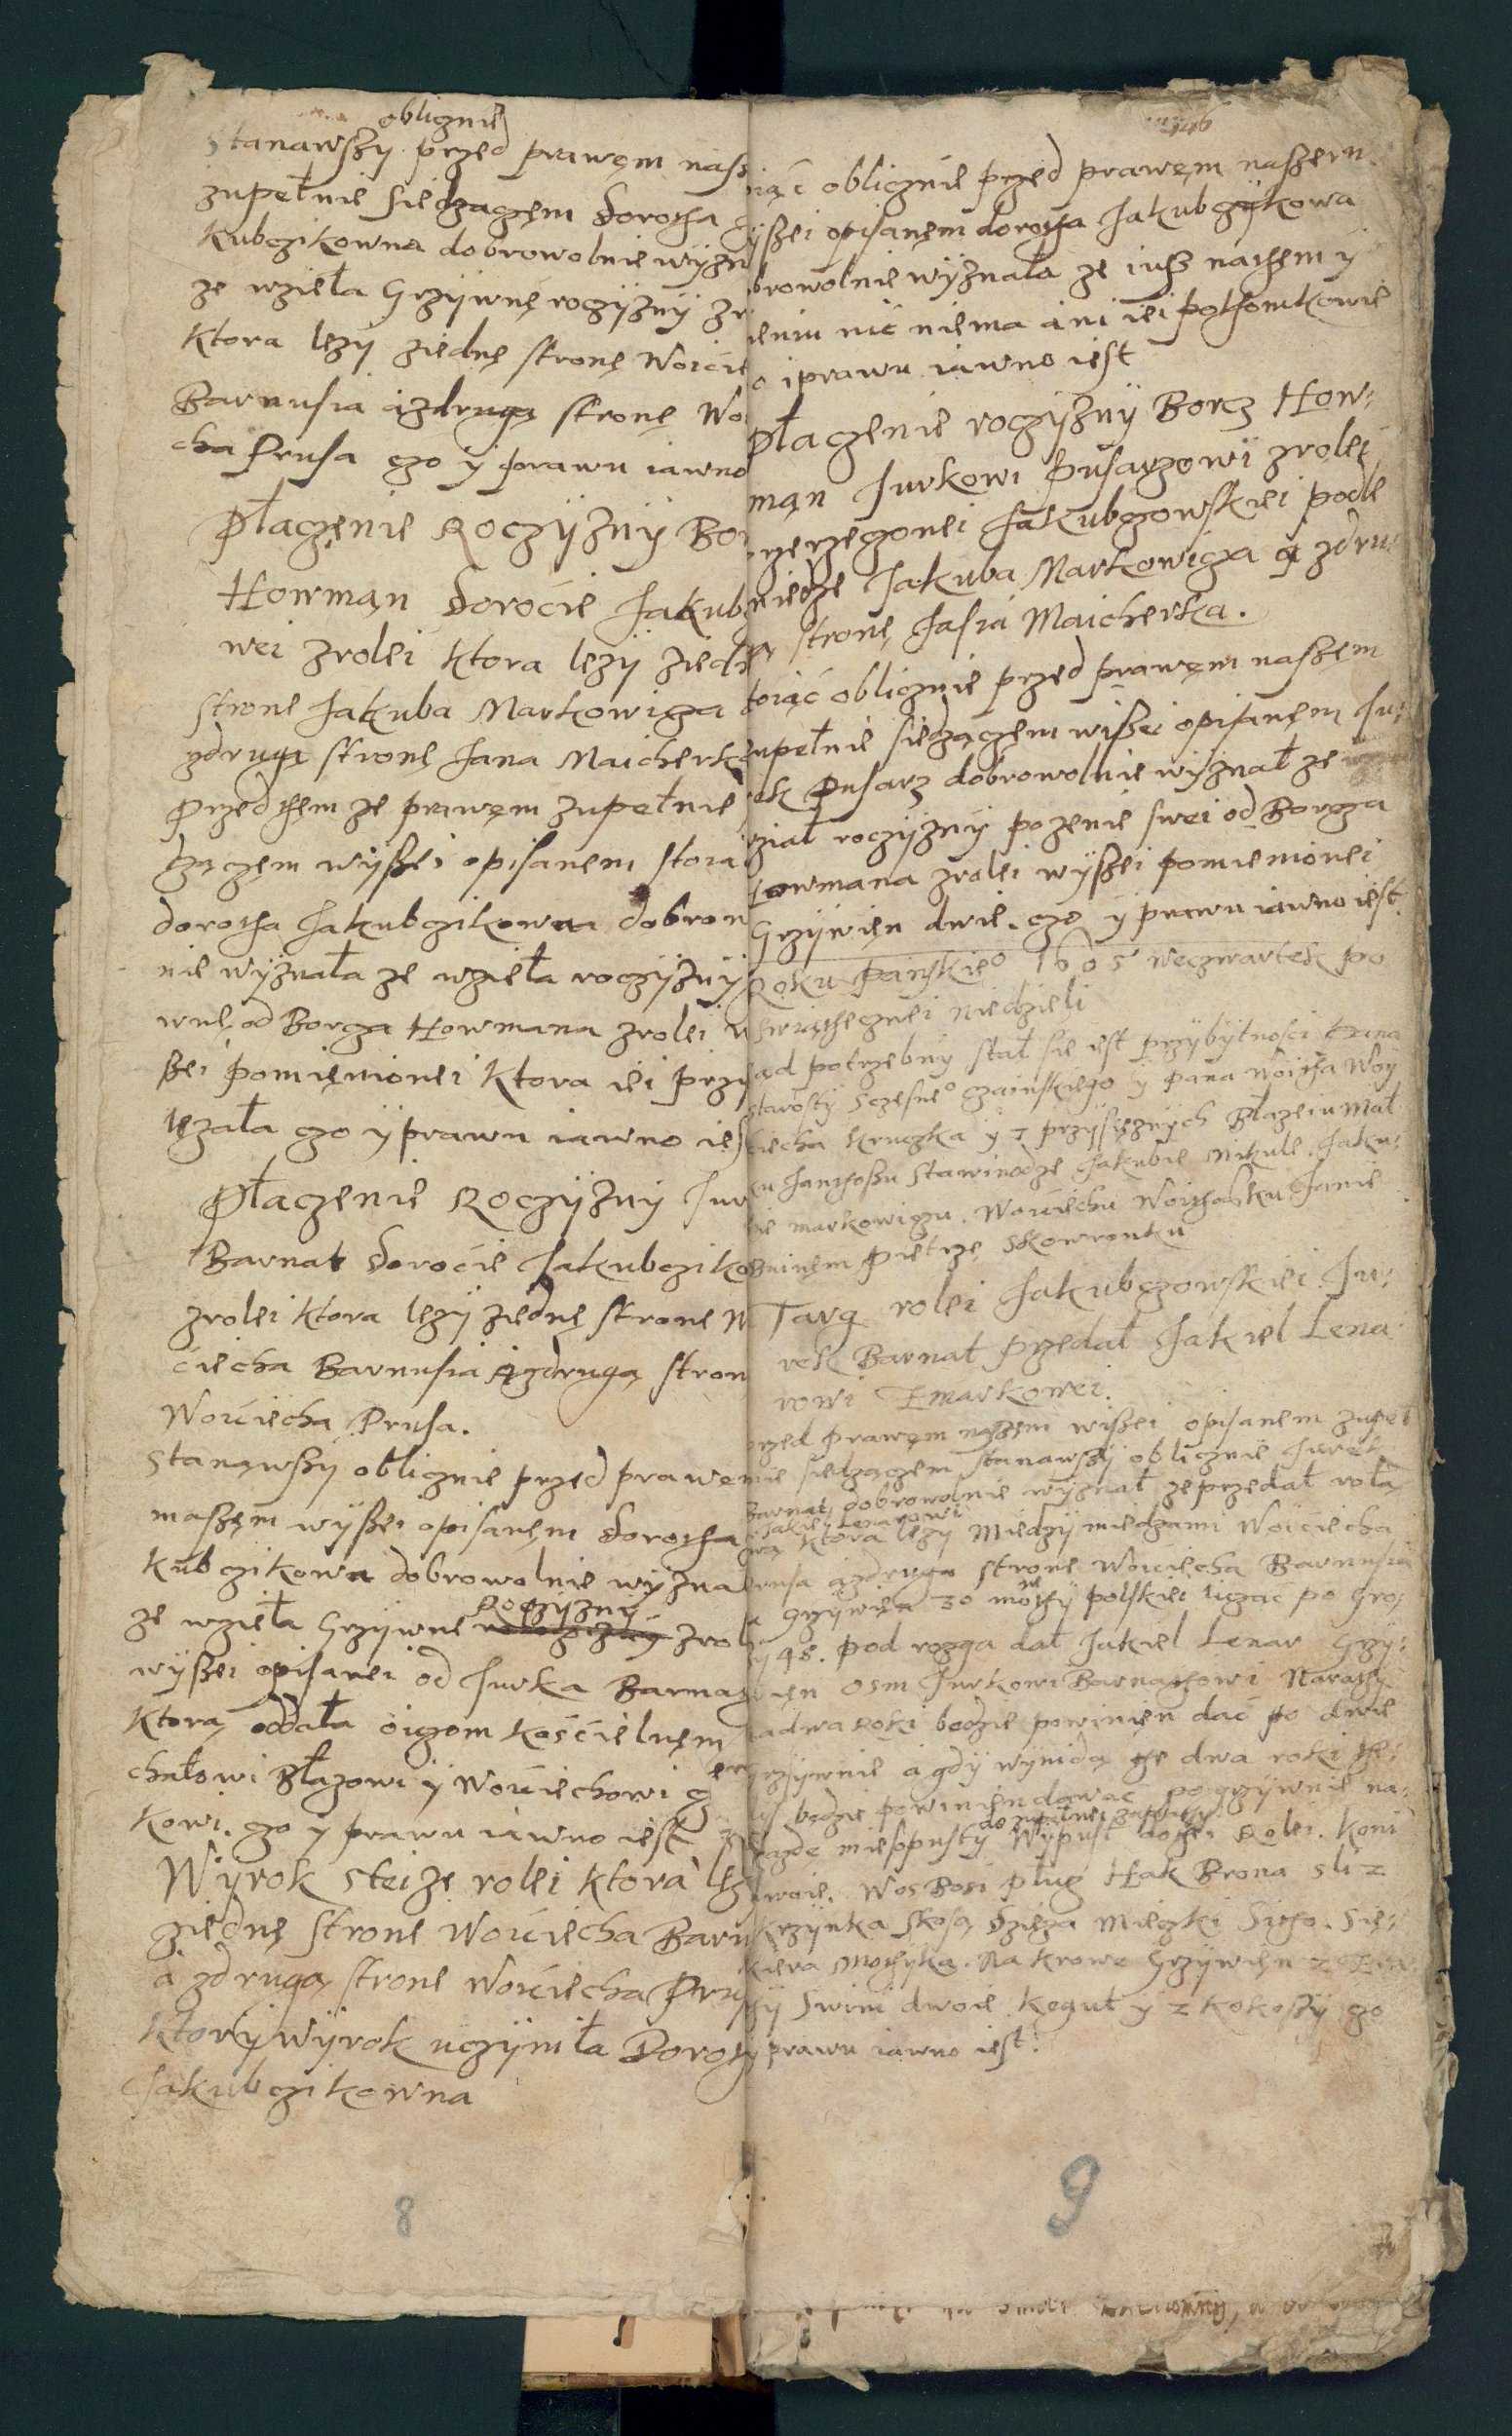 obligznie
Stanawszÿ przed prawęm nasz
zupełnie siedzączęm Dorotha
Kubczikowna dobrowolnie wÿzn
ze wzieła Grzÿwnę roczÿznÿ zr
Ktora lezÿ ziednę stronę Woicie
Barnusia azdrugą stronę Wo
cha Prusa czo ÿ prawu iawno
Płaczenie Roczÿznÿ Bor
Howmąn Dorocie Jakub
wei zrolei Ktora lezÿ ziedn
strone Jakuba Markowiga
zdrugą stronę Jana Maicherk
Przed them ze prawęm zupełnie
dzączęm wÿszei opisanem stoia
dorotha Jakubczikowna dobrow
nie wÿznała ze wzieła roczÿznÿ
wnę od Borga Howmana zrolei w
szei pomięnionei Ktora iei przÿ
lęzała czo ÿ prawu iawno ies
Płaczenie Roczÿznÿ Jur
Barnat Dorocie Jakubcziko
zrolei Ktora lezÿ ziednę strone W
ciecha Barnusia azdrugą stron
Woiciecha Prusa.
Stanąwszÿ obligznie przed prawę
naszęm wÿszei opisanęm Dorotha
Kubczikowa dobrowolnie wÿzna
Roczÿznÿ
ze wzieła Grzÿwne zrol
wÿszei opisanei od Jurka Barna
Ktorą oddała oiczom kosćielnęm
chałowi Błazowi ÿ Woiciechowi
kowi. czo ÿ prawu iawno iest
Wÿrok steize rolei Ktora lęz
ziednę strone Woiciecha Barn
a zdrugą strone Woiciecha Pru
Ktorÿ wÿrok uczÿniła Doroth
Jakubczikowna
8
iąc obligznie przed prawęm naszem
ÿszei opisanęm dorotha Jakubczÿkowa
browolnie wÿznała ze iusz nathem ÿ
ieniu nic niema ani iei pothomkowie
o i prawu iawno iest
Płaczenie roczÿznÿ Borcz How:
mąn Jurkowi Pusarzowi zrolei
Jakubczowskiei podle
miedze Jakuba Markowicza a zdru
stronę Jasia Maicherka.
toiąc obligznie przed prawęm naszem
upełnie siedzączęm wiszei opisanęm Ju:
rek Pusarz dobrowolnie wÿznał ze
ział roczÿznÿ pozenie swei od Borcza
Howmana zrolei wÿszei pomienionei
Grzÿwięn dwie. czo ÿ prawu iawno iest
Roku Pańskieo 1605 weczwartek po
Swiątheczniei niedzieli
ąd potrzebnÿ stał sie iest przÿbÿtnosci Pana
starostÿ Sczesneo Czainskiego ÿ Pana Woitha Woÿ
ciecha Kruczka ÿ 7 przÿsięznÿch Błazeiu Mał
ku Janthoszu Stawinodze Jakubie Mikule. Jaku:
bie markowiczu. Woiciechu Woithasku Janie
Pietrzę Skowronku
Targ rolei Jakubczowskiei. Ju:
rek Barnat przedał Jakiel Lena
rowi Zmarkowei.
rzed prawęm naszem wiszei opisanem zupeł
nie siedzączem stanąwszÿ obligznie Jurek
Barnat dobrowolnie wÿznał ze przedał rolą
Jakiel Lenarowi
Ktora lezÿ Miedzÿ miedzami Woiciecha
rusa azdrugą strone Woiciecha Barnusia
Grzÿwięn 30 polskiei licząc po Gro
ÿ 48. pod rozga dał Jakiel Lenar Grzÿ:
więn osm Jurkowi Barnathowi Narathÿ
adwa Roki bedzie powinięn dać po dwie
grzÿwnie a gdÿ wÿnidą the dwa roki the:
bedzie powinięn dawac po grzÿwnie na:
do zupełnei zapłatÿ
kazdę miesopustÿ Wÿpust dothei Rolei. Koni
dwoie. Wos Bosi pług Hak Brona sli 2
krzÿnka skosą dzięza mieczki Sitho. Sie:
kiera Mothÿka. Na krowe Grzÿwięn 2
Swini dwoie Kogut ÿ 2 kokoszÿ czo
ÿ prawu iawno iest.
9